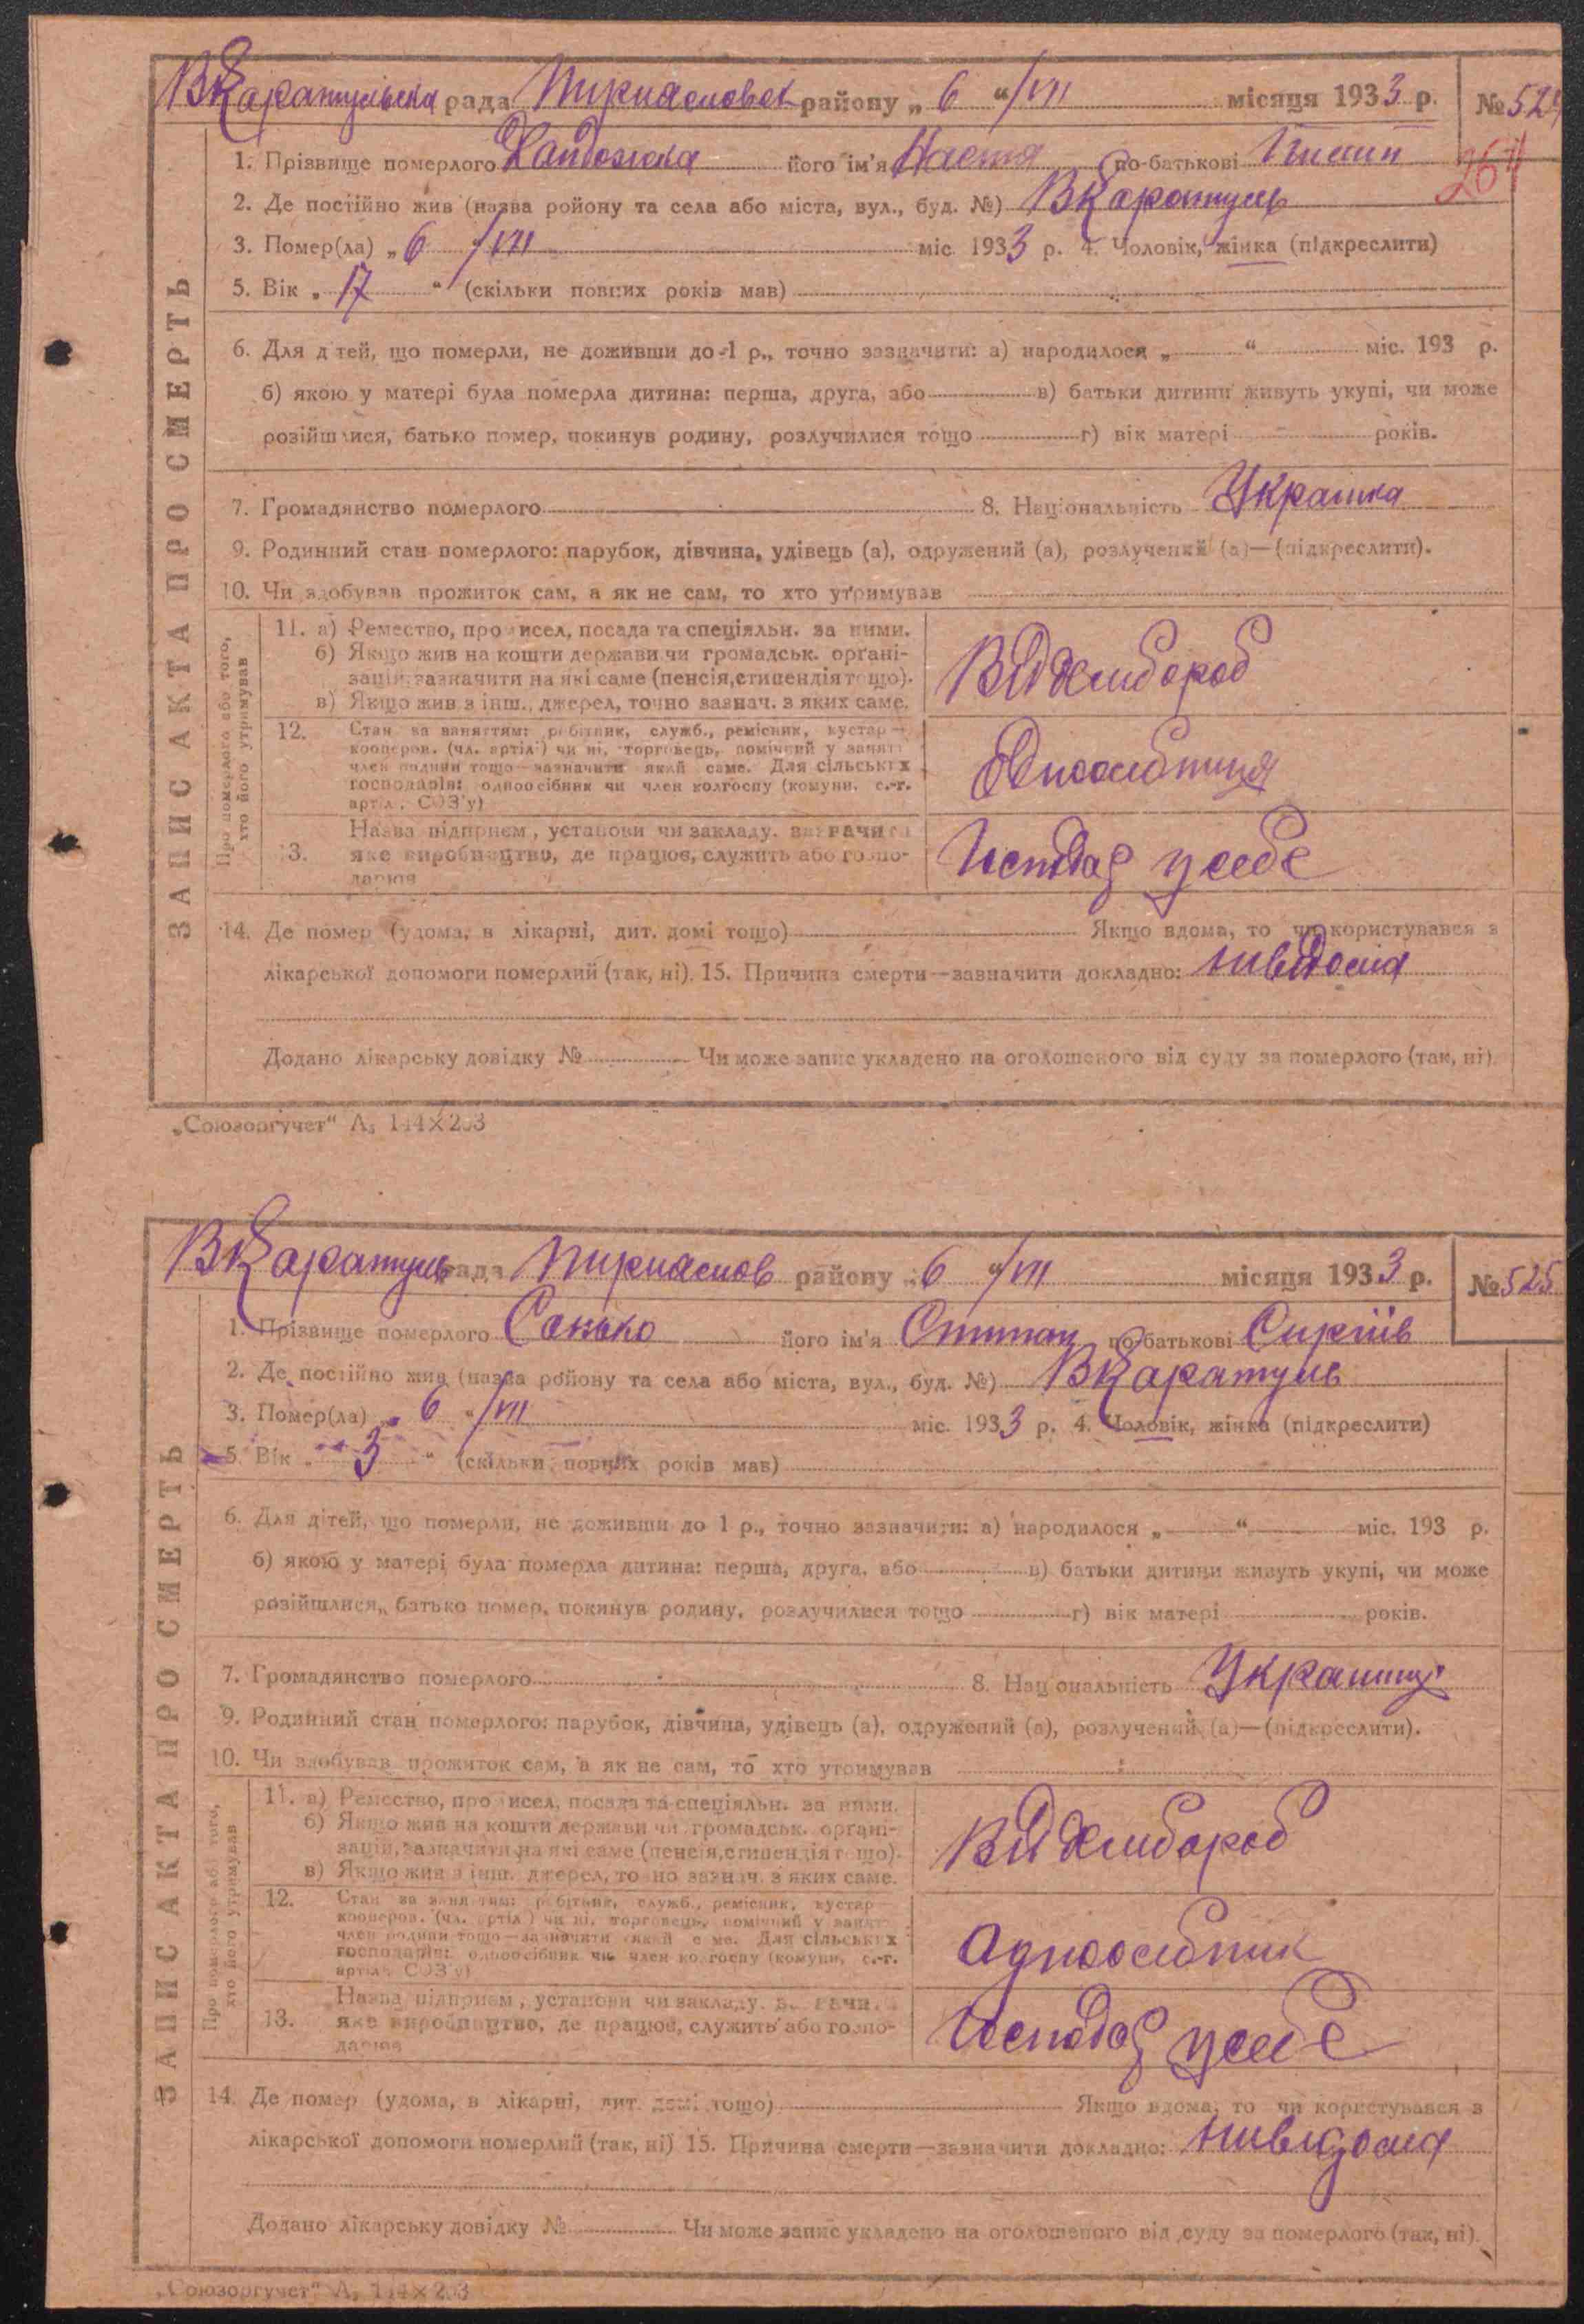 ЗАПИС АКТА ПРО СМЕРТЬ
ВКаратульська рада Пириаславськ району „ 6 “ /VII місяця 1933 р. № 524
1. Прізвище померлого його ім'я Настя по-батькові
267
2. Де постійно жив (назва ройону та села або міста, вул., буд. №) ВКаратуль
3. Помер(ла) „ 6 “ /VII міс. 1933 р. 4. Чоловік, жінка (підкреслити)
5. Вік „ 17 “ (скільки повних років мав)
6. Для дітей, що померли, не доживши до 1 р., точно зазначити: а) народилося „ “ міс. 193 р.
б) якою у матері була померла дитина: перша, друга, або в) батьки дитини живуть укупі, чи може
розійшлися, батько помер, покинув родину, розлучилися тощо г) вік матері років.
7. Громадянство померлого 8. Національність Украінка
9. Родинний стан померлого: парубок, дівчина, удівець (а), одружений (а), розлучений (а)—(підкреслити).
10. Чи здобував прожиток сам, а як не сам, то хто утримував
Про померлого або того, хто його утримував
11. а) Ремество, промисел, посада та спеціяльн. за ними.
б) Якщо жив на кошти держави чи громадськ. органі-
зацій, зазначити на які саме (пенсія, стипендія тощо).
в) Якщо жив з інш. джерел, точно зазнач. з яких саме.
Від Хлибороб
12. Стан за заняттям: робітник, служб., ремісник, кустар—
кооперов. (чл. артілі) чи ні, торговець, помічний у занятт
член родини тощо—зазначити який саме. Для сільських
господарів: одноосібник чи член колгоспу (комуни, с.-г.
артіл., СОЗ'у)
Одноосібниця
13. Назва підприєм., установи чи закладу. визначити
яке виробництво, де працює, служить або госпо-
дарює
у себе
14. Де помер (удома, в лікарні, дит. домі тощо) Якщо вдома, то чи користувався з
лікарської допомоги померлий (так, ні). 15. Причина смерти—зазначити докладно: нивідома
Додано лікарську довідку № Чи може запис укладено на оголошеного від суду за померлого (так, ні)
„Союзоргучет“ А₅ 144×203
ЗАПИС АКТА ПРО СМЕРТЬ
ВКаратуль рада Пириаслов району „ 6 “ /VII місяця 1933 р. № 525
1. Прізвище померлого Санько його ім'я Стипан по-батькові Сиргіїв
2. Де постійно жив (назва ройону та села або міста, вул., буд. №) ВКаратуль
3. Помер(ла) „ 6 “ /VII міс. 1933 р. 4. Чоловік, жінка (підкреслити)
5. Вік „ 3 “ (скільки повних років мав)
6. Для дітей, що померли, не доживши до 1 р., точно зазначити: а) народилося „ “ міс. 193 р.
б) якою у матері була померла дитина: перша, друга, або в) батьки дитини живуть укупі, чи може
розійшлися, батько помер, покинув родину, розлучилися тощо г) вік матері років.
7. Громадянство померлого 8. Національність Украинць
9. Родинний стан померлого: парубок, дівчина, удівець (а), одружений (а), розлучений (а)—(підкреслити).
10. Чи здобував прожиток сам, а як не сам, то хто утримував
Про померлого або того, хто його утримував
11. а) Ремество, промисел, посада та спеціяльн. за ними.
б) Якщо жив на кошти держави чи громадськ. органі-
зацій, зазначити на які саме (пенсія, стипендія тощо).
в) Якщо жив з інш. джерел, точно зазнач. з яких саме.
Від Хлибороб
12. Стан за заняттям: робітник, служб., ремісник, кустар—
кооперов. (чл. артіл.) чи ні, торговець, помічний у занятт
член родини тощо—зазначити який саме. Для сільських
господарів: одноосібник чи член колгоспу (комуни, с.-г.
артіл., СОЗ'у)
Одноосибник
13. Назва підприєм., установи чи закладу. визначити
яке виробництво, де працює, служить або госпо-
дарює
у себе
14. Де помер (удома, в лікарні, дит. домі тощо) Якщо вдома, то чи користувався з
лікарської допомоги померлий (так, ні) 15. Причина смерти—зазначити докладно: нивідома
Додано лікарську довідку № Чи може запис укладено на оголошеного від суду за померлого (так, ні).
„Союзоргучет“ А₅ 144×203